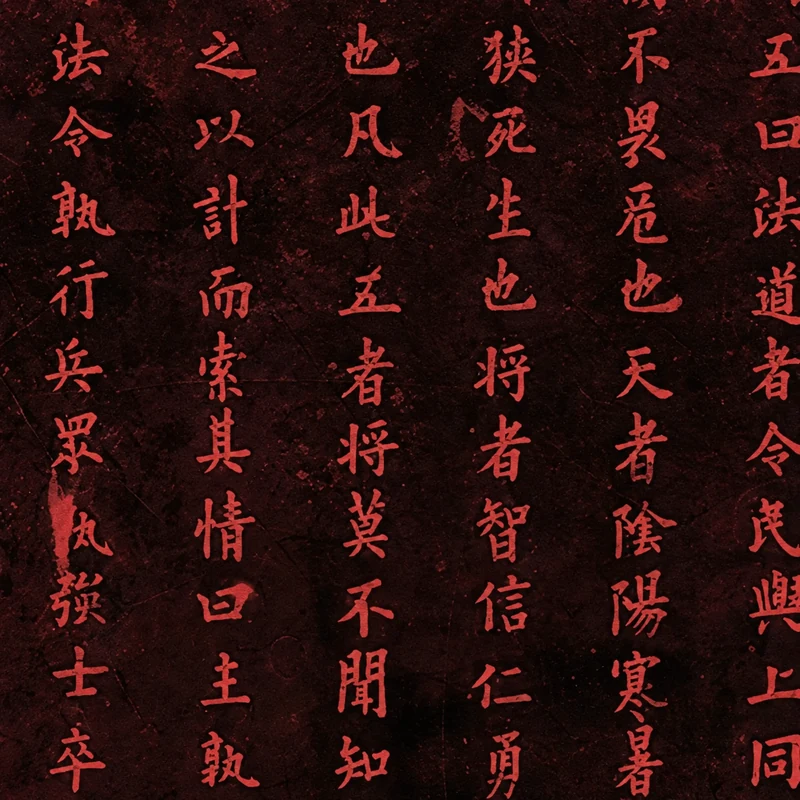 五曰法道者令民輿上同
不畏危也天者陰陽寒暑
狭死生也将者智信仁勇
也凡此五者将莫不聞知
之以計而索其情曰主孰
法令執行兵眾強士卒